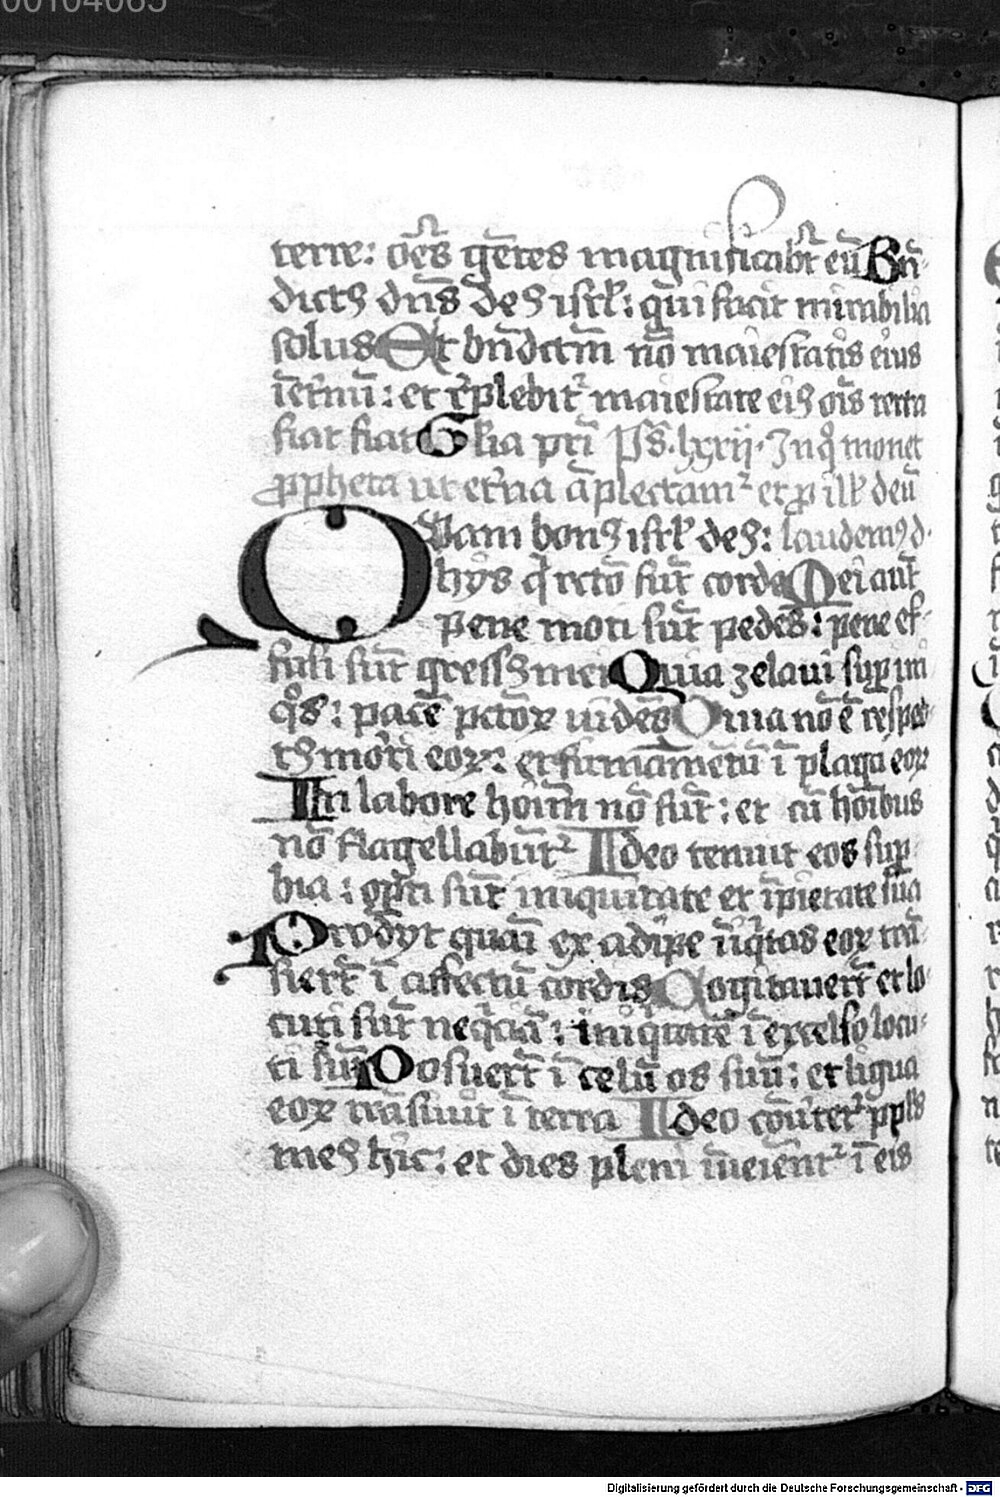 00104065
terre: oēs gētes magnificabūt eū Bn̄-
dictꝰ dn̄s deꝰ isrl̄: qui facit mirabilia
solus Et bn̄dictū nō maiestatis eius
īet̄nū: et rēplebit᷑ maiestate eiꝰ oīs terra
fiat fiat Glīa pr̄i Ps̄. lxxij. In qͦ monet
ꝓpheta ut et̄na āplectam᷑ et ꝓ ill̄ deū
Quam bonꝰ isrl̄ deꝰ: laudemꝰ d·
hijs qͥ recto sūt corde Mei aut̄
pene moti sūt pedes: pene ef-
fusi sūt gressꝰ mei Quia zelavi suꝑ ini
qͦs: pacē pctōꝝ uidēs Quia nō ē respec-
tꝰ morti eoꝝ: et firmamētū ī plaga eoꝝ
In labore hoīm nō sūt: et cū hoībus
nō flagellabūt᷑ Ideo tenuit eos suꝑ-
bia: oꝑti sūt iniquitate et īpietate sua
Prodijt quasi ex adipe īiqͥtas eoꝝ trā-
sierūt ī affectū cordis Cogitauerūt et lo-
cuti sūt neqͥciā: iniqͥtatē ī excelso locu-
ti sūt Posuerūt ī celū os suū: et līgua
eoꝝ trāsiuit ī terra Ideo cōūtet᷑ ppl̄s
meꝰ hic: et dies pleni īueniēnt᷑ ī eis
Digitalisierung gefördert durch die Deutsche Forschungsgemeinschaft - DFG